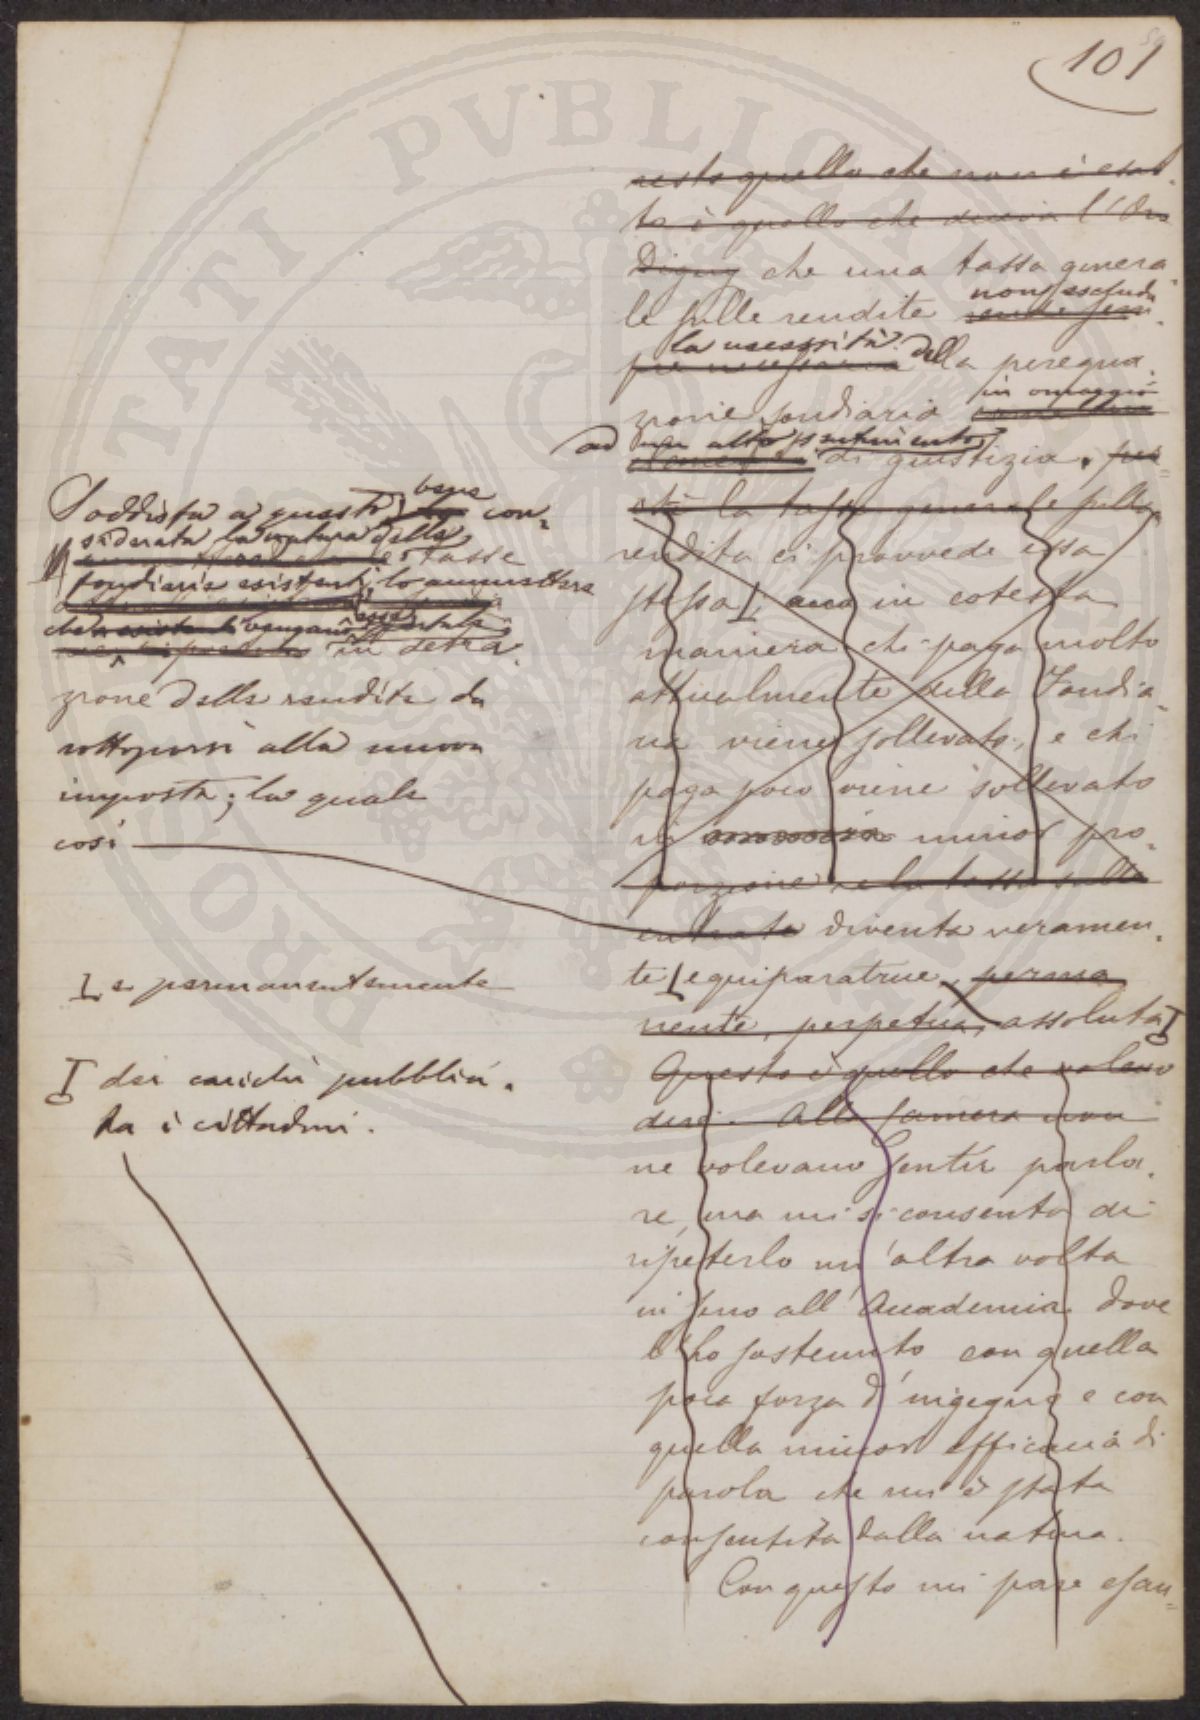 101
resto quello che non è esat-
to è quello che diceva l'On
Digny che una tassa genera-
le sulle rendite non esclude
rende sem-
la necessità della perequa-
pre necessaria
zione fondiaria in omaggio
ad un alto sentimento
di giustizia. per-
chè la tassa generale sulla
rendita ci provvede essa
stessa, in cotesta
maniera chi paga molto
attualmente della Fondia-
ria viene sollevato, e chi
paga poco viene sollevato
in minor pro-
porzione e la tassa sulle
entrate diventa veramen-
te equiparatrice, perma-
nente, perpetua, assoluta
Questo è quello che volevo
dire. Alla Camera non
ne volevano sentir parla-
re, ma mi si consenta di
ripeterlo un'altra volta
in seno all'Accademia dove
l'ho sostenuto con quella
poca forza d'ingegno e con
quella minor efficacia di
parola che mi è stata
consentita dalla natura.
Con questo mi pare esau-
Soddisfa a questo bene con-
siderata la natura delle
tasse
fondiarie esistenti, lo ammettere
che vengano
in detra-
zione delle rendite da
sottoporsi alla nuova
imposta; la quale
così
e permanentemente
dei carichi pubblici
tra i cittadini.
PROSPERITATI PVBLICAE